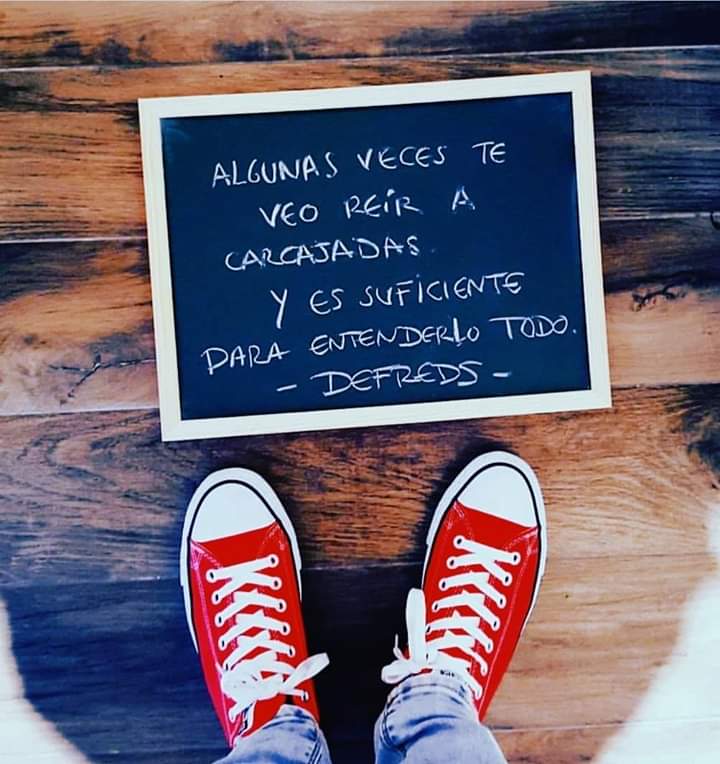 ALGUNAS VECES TE
VEO REÍR A
CARCAJADAS.
Y ES SUFICIENTE
PARA ENTENDERLO TODO.
- DEFREDS -